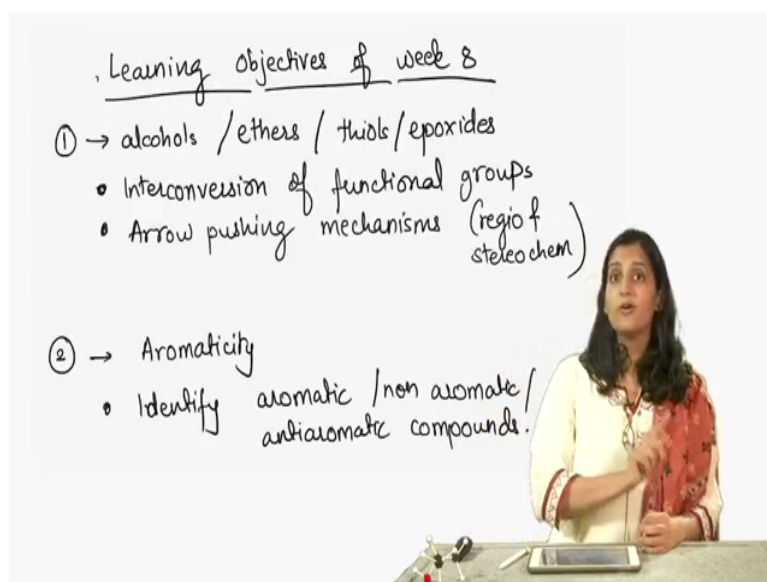 Learning Objectives of week 8
① → alcohols / ethers / thiols / epoxides
• Interconversion of functional groups
• Arrow pushing mechanisms (regio &
stereochem)
② → Aromaticity
• Identify aromatic / non aromatic /
antiaromatic compounds.